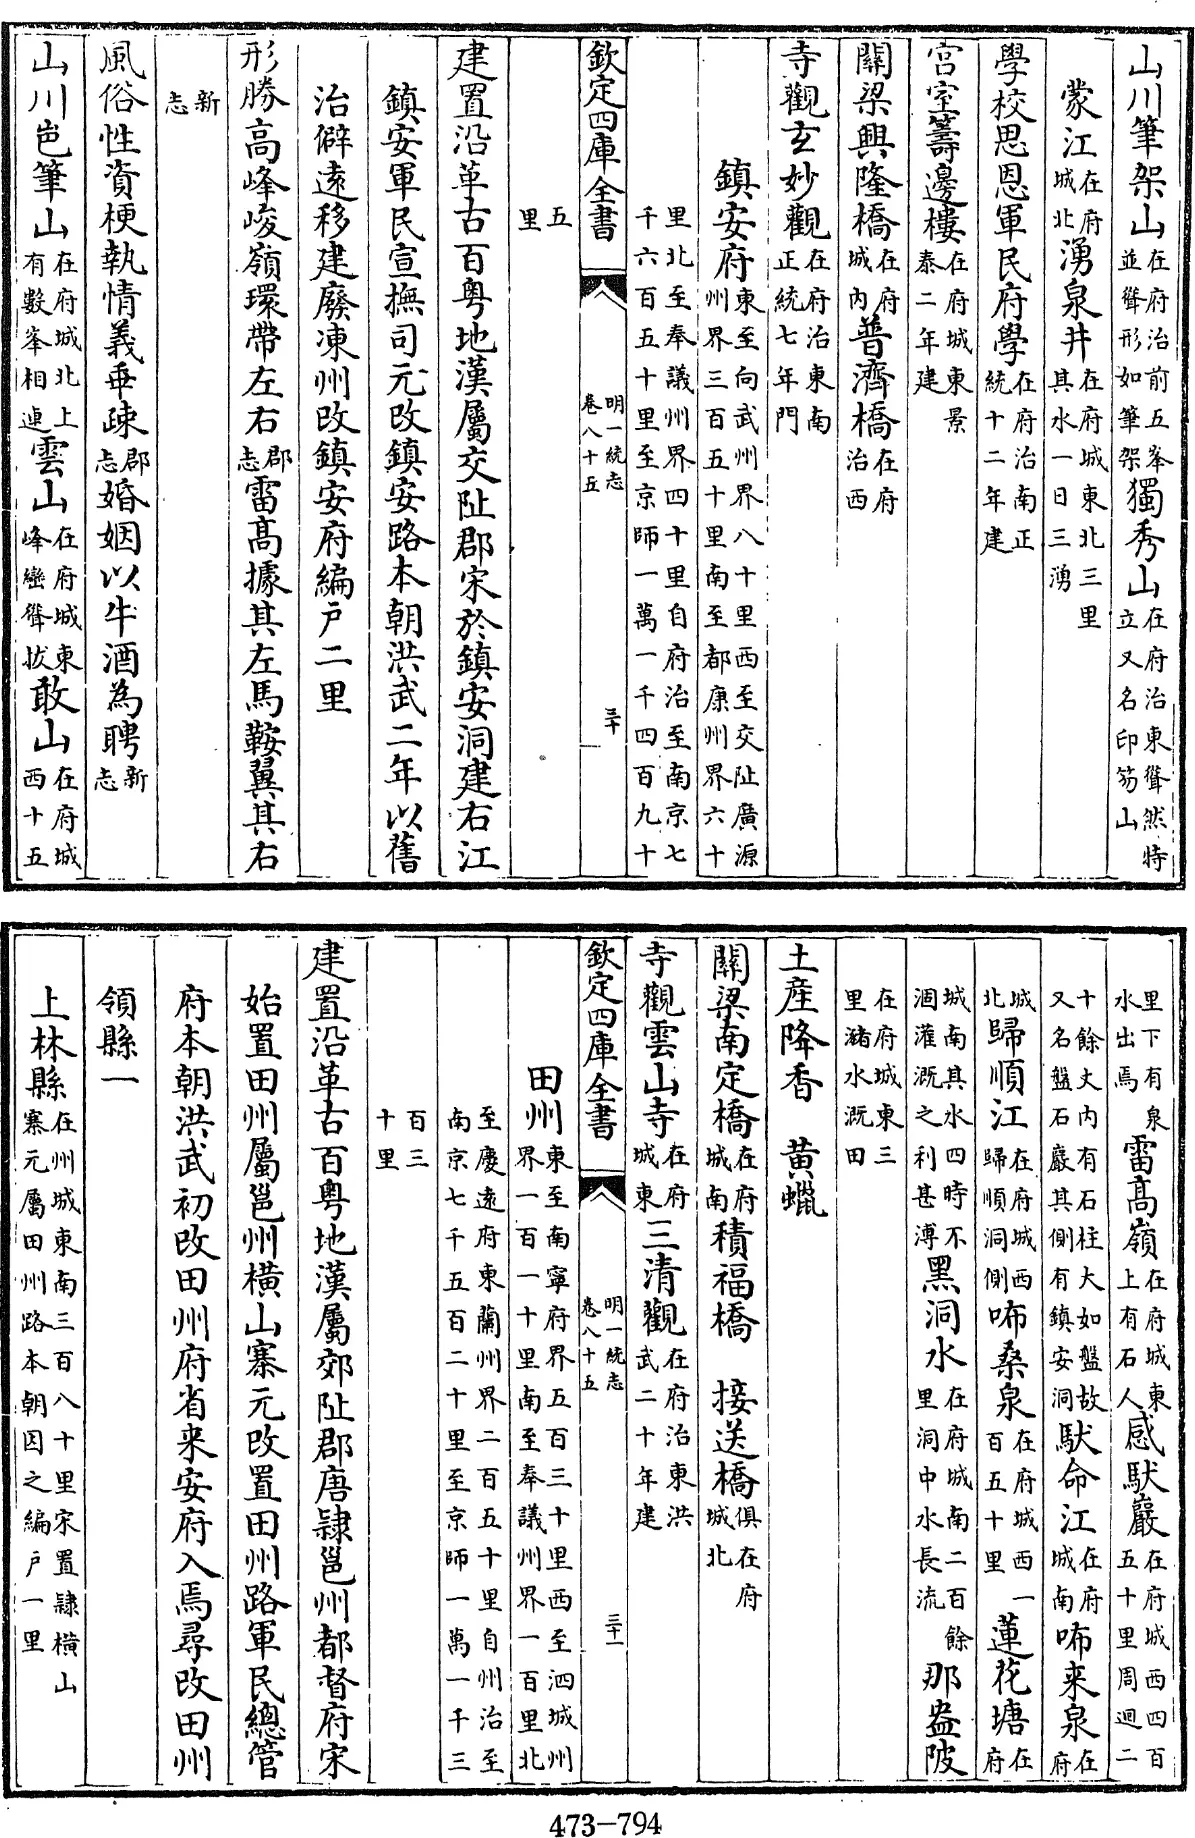 山川筆架山在府治前五峯並聳形如筆架獨秀山在府治東聳然特立又名印笏山
蒙江在府城北湧泉井在府城東北三里其水一日三湧
學校思恩軍民府學在府治南正統十二年建
宫室籌邊樓在府城東景泰二年建
關梁興隆橋在府城内普濟橋在府治西
寺觀玄妙觀在府治東南正統七年門
鎮安府東至向武州界八十里西至交阯廣源州界三百五十里南至都康州界六十
里北至奉議州界四十里自府治至南京七千六百五十里至京師一萬一千四百九十
欽定四庫全書 明一統志卷八十五 三十
五里
建置沿革古百粤地漢屬交阯郡宋於鎮安洞建右江
鎮安軍民宣撫司元改鎮安路本朝洪武二年以舊
治僻遠移建廢凍州改鎮安府編戸二里
形勝高峰峻嶺環帶左右郡志雷高據其左馬鞍翼其右
新志
風俗性資梗執情義乖疎郡志婚姻以牛酒為聘新志
山川岜筆山在府城北上有數峯相連雲山在府城東峰巒聳拔敢山在府城西十五
里下有泉水出焉雷高嶺在府城東上有石人感馱巖在府城西四百五十里周迴二
十餘丈内有石柱大如盤故又名盤石巖其側有鎮安洞馱命江在府城南咘来泉在府
城北歸順江在府城西歸順洞側咘桑泉在府城西一百五十里蓮花塘在府
城南其水四時不涸灌溉之利甚溥黑洞水在府城南二百餘里洞中水長流那盎陂
在府城東三里瀦水溉田
土産降香 黄蠟
關梁南定橋在府城南積福橋 接送橋俱在府城北
寺觀雲山寺在府城東三清觀在府治東洪武二十年建
欽定四庫全書 明一統志卷八十五 三十一
田州東至南寧府界五百三十里西至泗城州界一百一十里南至奉議州界一百里北
至慶逺府東蘭州界二百五十里自州治至南京七千五百二十里至京師一萬一千三
百三十里
建置沿革古百粤地漢屬郊阯郡唐隸邕州都督府宋
始置田州屬邕州橫山寨元改置田州路軍民總管
府本朝洪武初改田州府省来安府入焉尋改田州
領縣一
上林縣在州城東南三百八十里宋置隸橫山寨元屬田州路本朝因之編戸一里
473-794